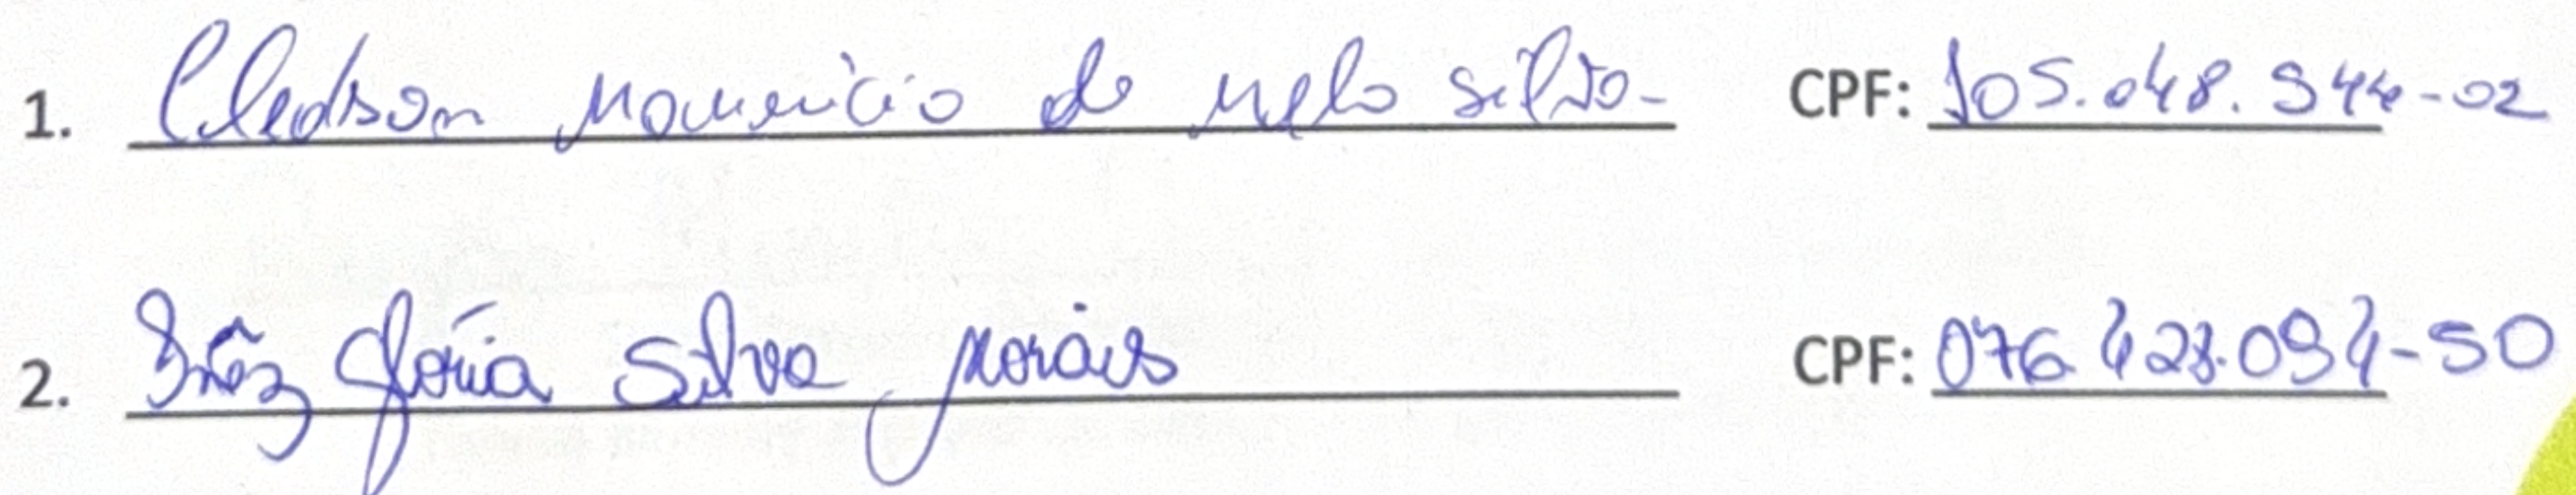 1. Cledson Mauricio de Melo Silva CPF: 105.048.944-02
2. Inêz Glória Silva Morais CPF: 076.428.094-50